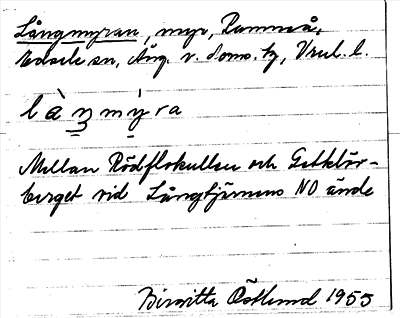 Långmyran, myr, Rammså,
Edsele sn, Ång. v. doms. tg, Vrul. l.
l à ŋ m ý r a
Mellan Rödflokullen och Getklöv-
berget vid Långtjärnens NO ände
Birgitta Östlund 1955